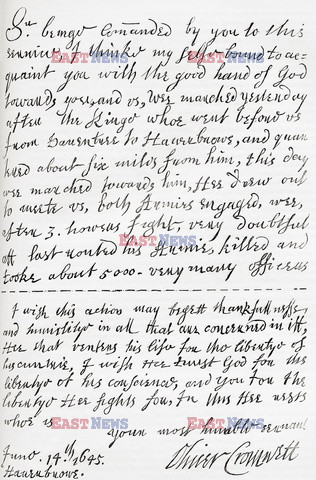 Sr. beinge Comanded by you to this
service I thinke my selfe bound to ac-
quaint you with the good hand of God
towards you, and vs, wee marched yesterday
after the Kinge whoe went before vs
from Dauentree to Hauerbrowe, and quar
tered about six miles from him, this day
wee marched towards him, Hee drew out
to meete vs, both Armies engaged, wee,
after 3. howers fight, very doubtful
att last routed his Armie, killed and
tooke about 5000. very many officers
I wish this action may begett thankfullnesse,
and humilitye in all that are concerned in itt,
Hee that venters his life for the libertye of
his cuntrie, I wish Hee trust God for the
libertye of his conscience, and you for the
libertye Hee fights for, In this Hee rests
whoe is
Your most humble servant
Oliver Cromwell
June. 14th 1645.
Hauerbrowe.
EAST NEWS
EAST NEWS
EAST NEWS
EAST NEWS
EAST NEWS
EAST NEWS
EAST NEWS